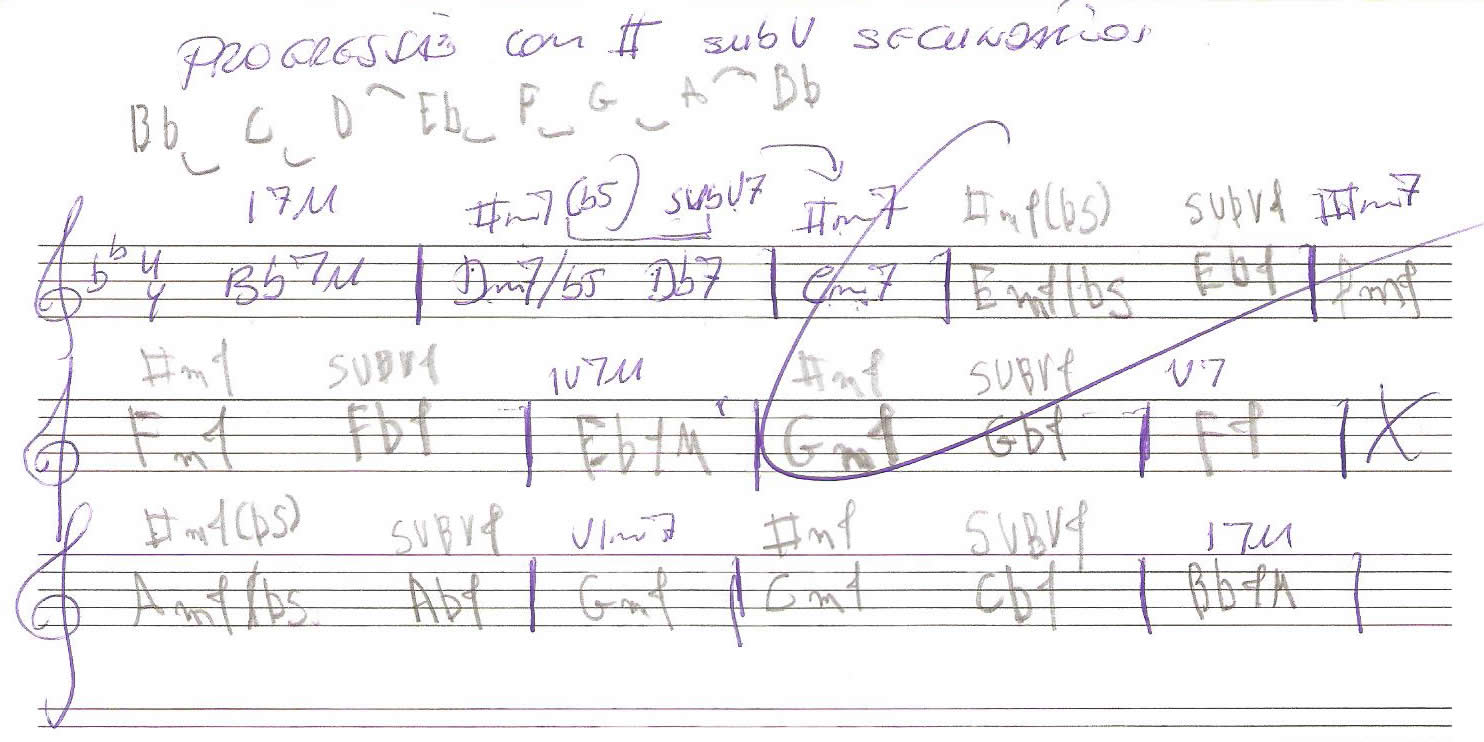 PROGRESSÃO com II subV SECUNDÁRIOS
Bb C D Eb F G A Bb
I7M IIm7(b5) SUBV7 IIm7 IIm7(b5) SUBV7 IIIm7
b b 4 4 Bb7M Dm7/b5 Db7 Cm7 Em7/b5 Eb7 Dm7
IIm7 SUBV7 IV7M IIm7 SUBV7 V7
Fm7 Fb7 Eb7M Gm7 Gb7 F7
IIm7(b5) SUBV7 VIm7 IIm7 SUBV7 I7M
Am7/b5 Ab7 Gm7 Cm7 Cb7 Bb7M